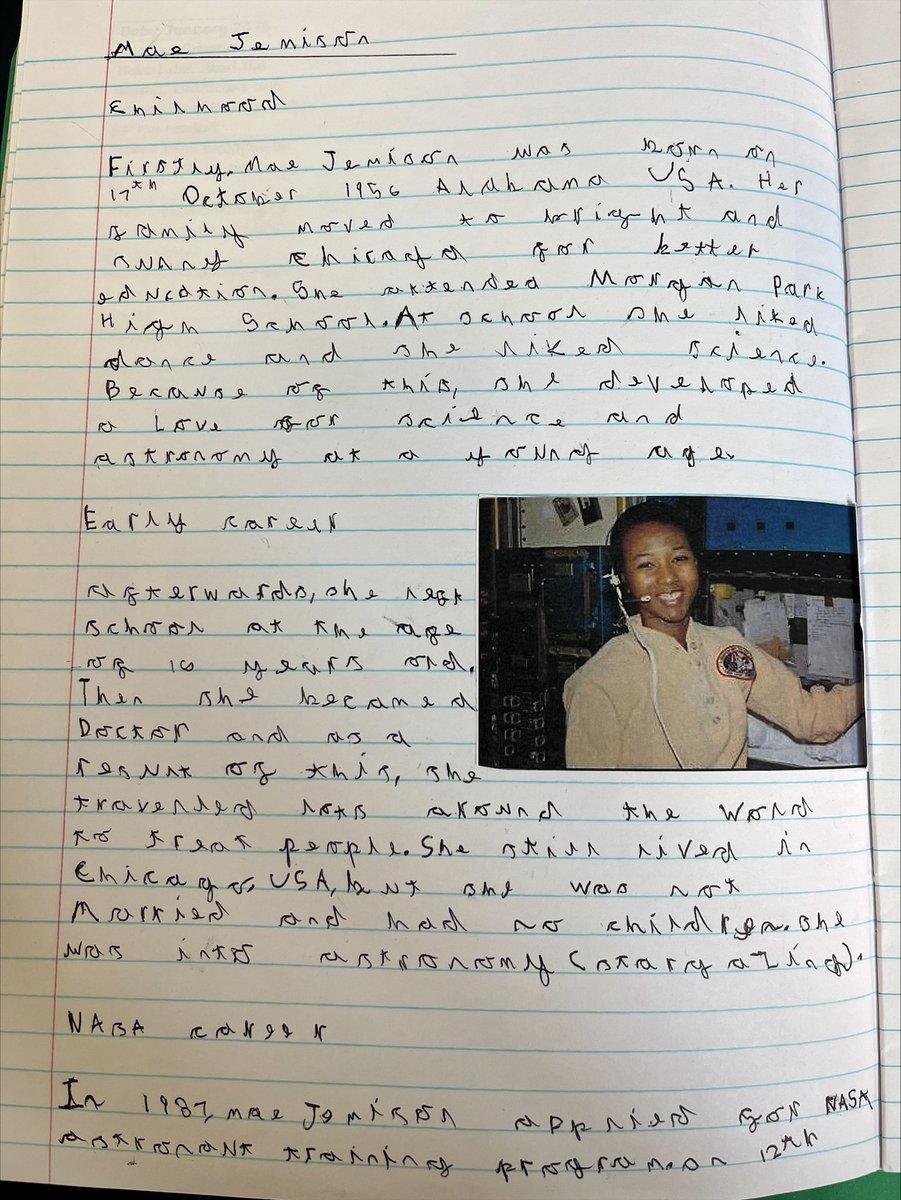 Mae Jemison
Chilhood
Firstly, Mae Jemison was born on
17th October 1956 Alabama USA. Her
family moved to bright and
sunny Chicago for better
education. She attended Morgan Park
High School. At school she liked
dance and she liked science.
Because of this, she developed
a Love for science and
astronomy at a young age.
Early career
afterwards, she left
school at the age
of 16 years old.
Then she became a
Doctor and as a
result of this, she
travelled lots around the World
to treat people. She still lived in
Chicago, USA, but she was not
Married and had no children. she
was into astronomy (stargazing).
NASA career
In 1987, mae Jemison applied for NASA
astronaut training program. on 12th